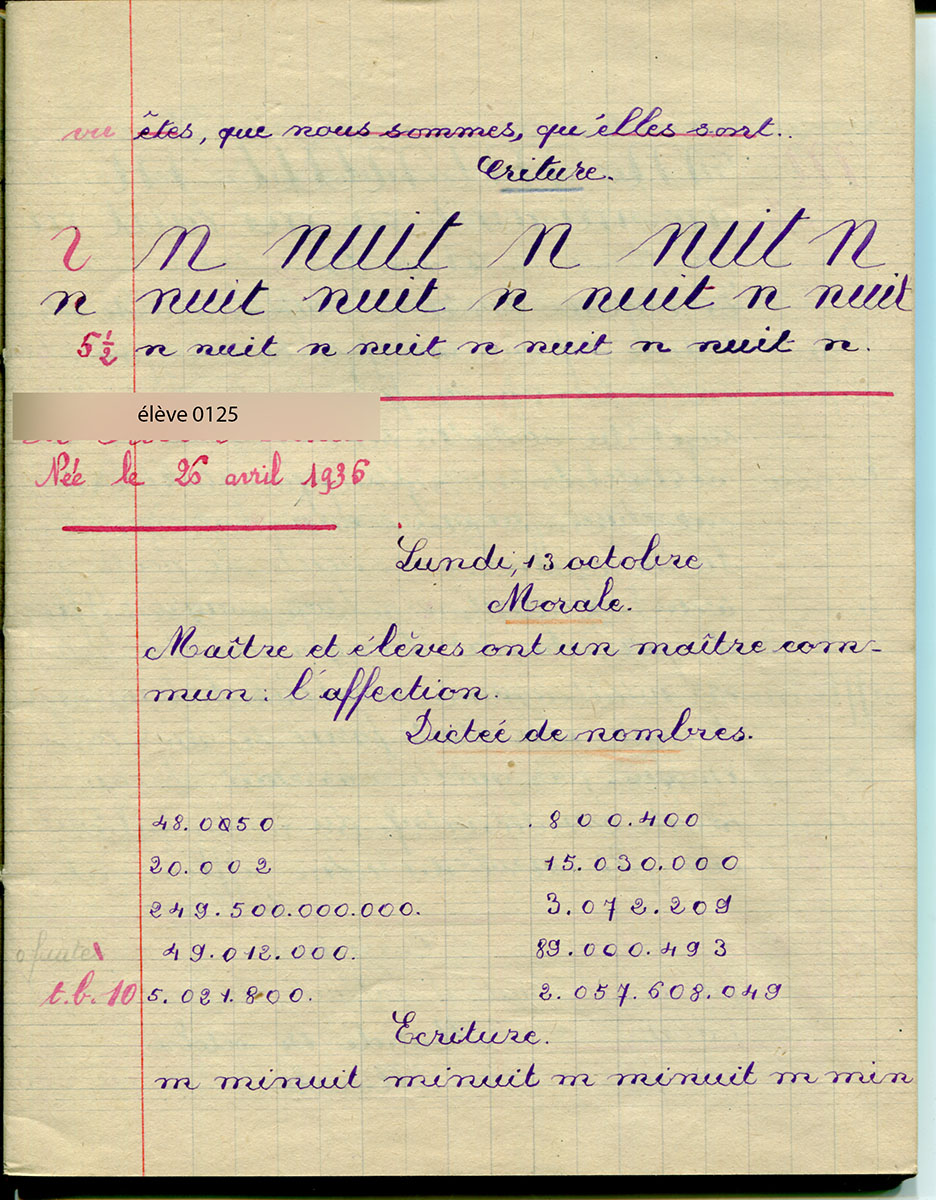 vu êtes, que nous sommes, qu'elles sont..
Ecriture.
n nuit n nuit n
n nuit nuit n nuit n nuit
5 1/2 n nuit n nuit n nuit n nuit n.
élève 0125
Née le 26 avril 1936
Lundi, 13 octobre
Morale.
Maître et élèves ont un maître com-
mun : l'affection.
Dicteé de nombres.
48.0050 800.400
20.002 15.030.000
249.500.000.000. 3.072.209
49.012.000. 89.000.493
0 fautes
t.b. 10 5.021.800. 2.057.608.049
Ecriture.
m minuit minuit m minuit m min